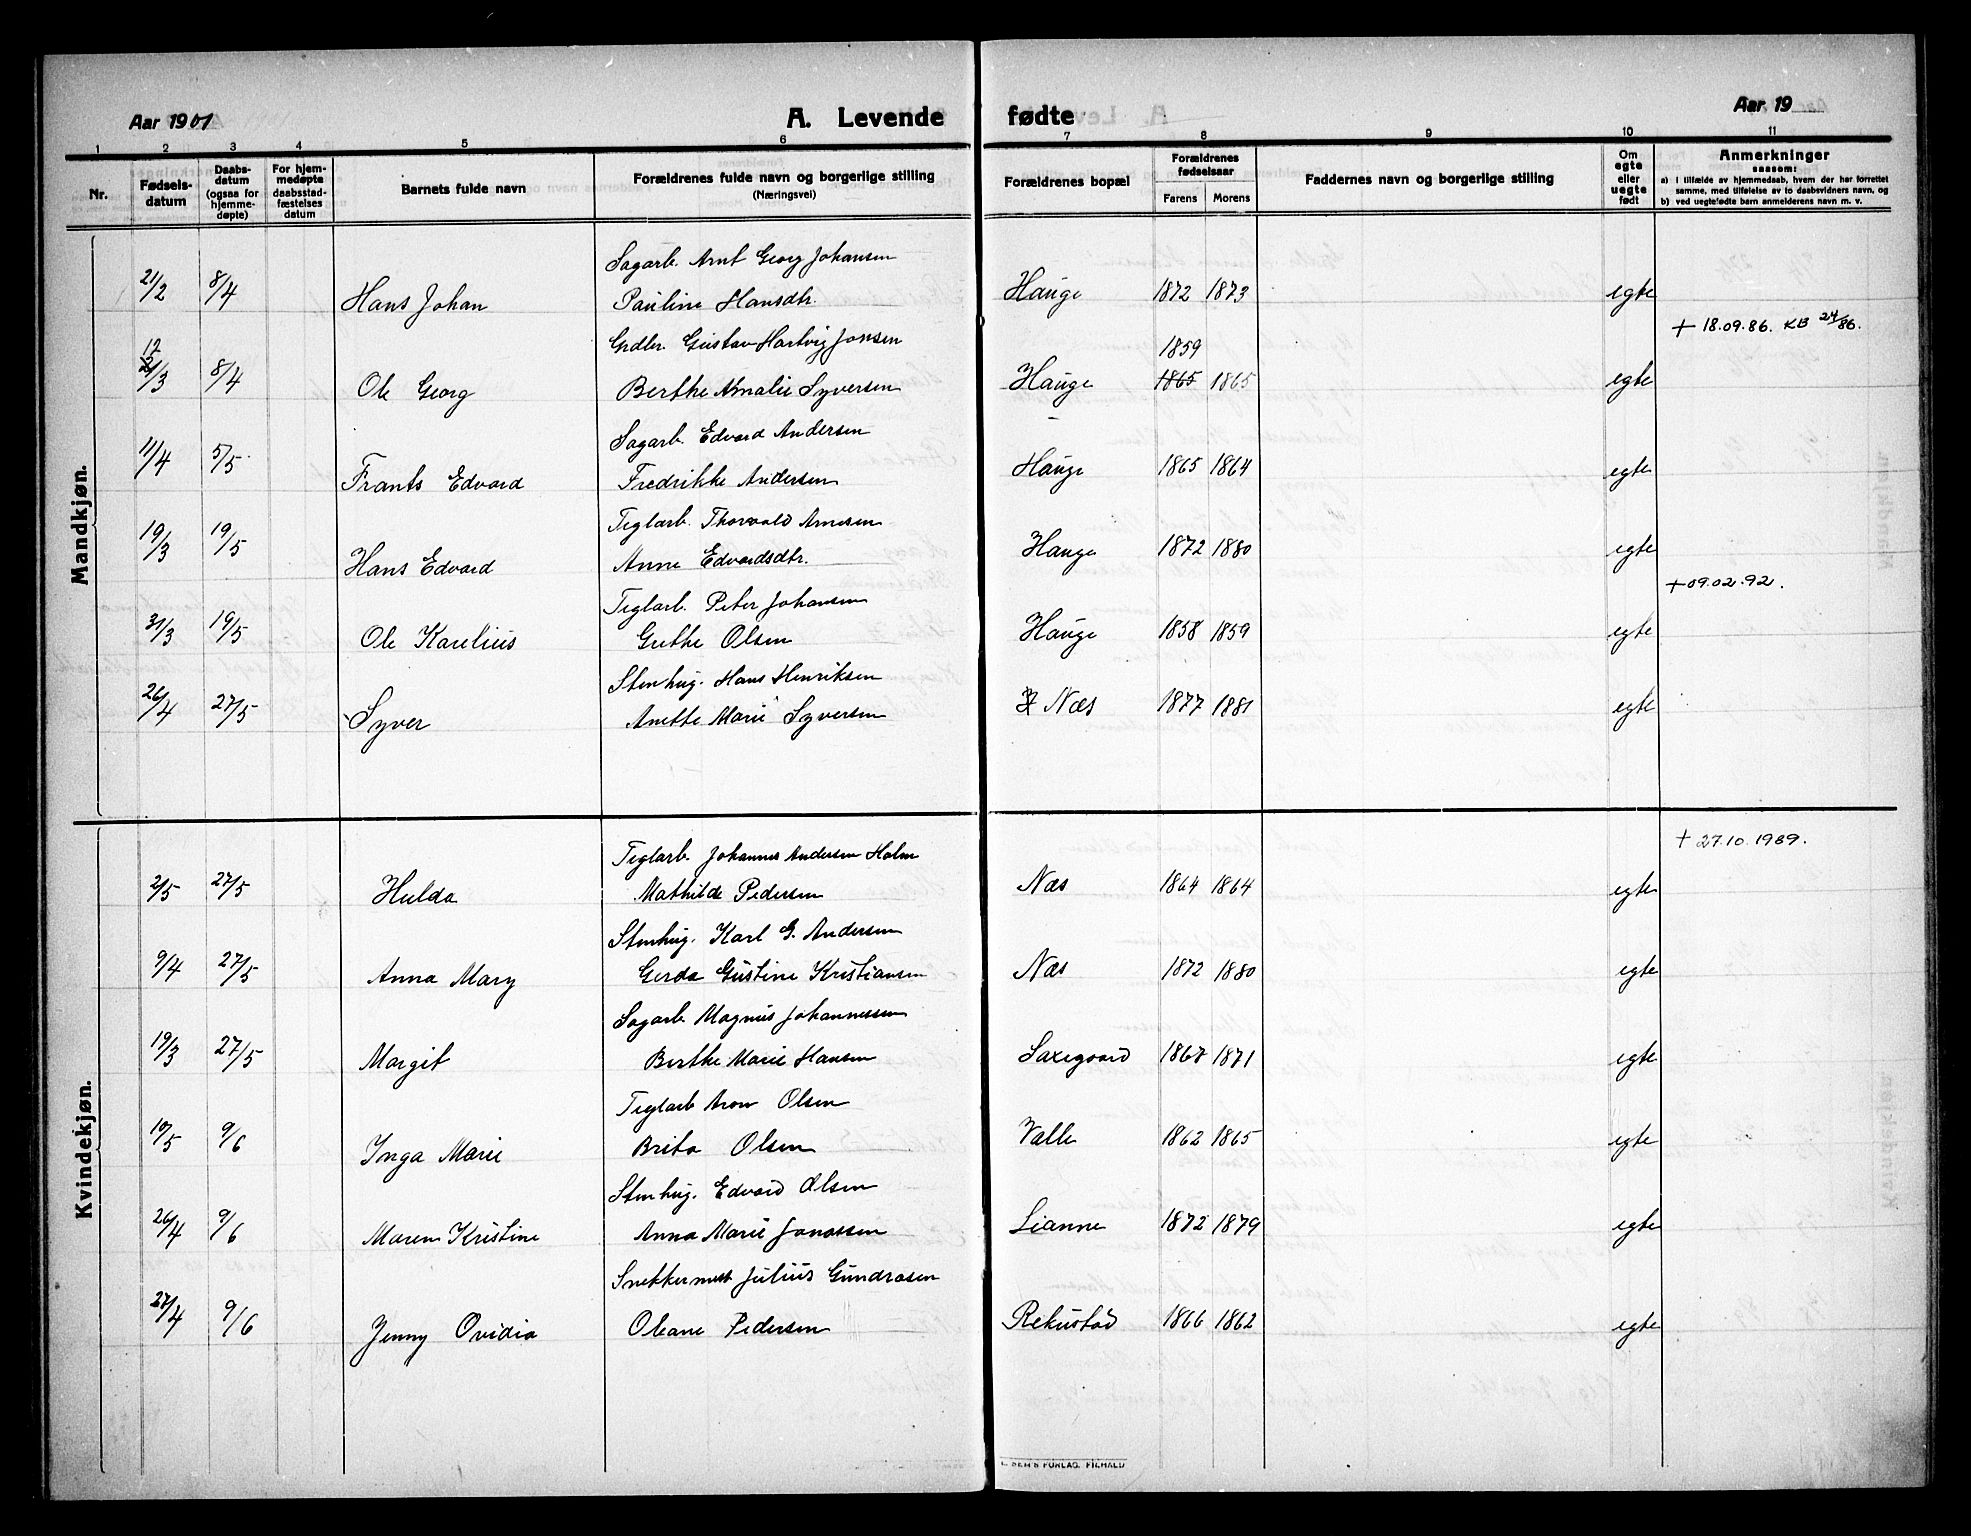 Aar 1901
A. Levende fødte
Aar 19
1 2 3 4 5 6 7 8 9 10 11
Nr.
Fødsels-datum
Daabs-datum (ogsaa for hjemme-døpte)
For hjem-medøpte daabsstad-fæstelses datum
Barnets fulde navn
Forældrenes fulde navn og borgerlige stilling
(Næringsvei)
Forældrenes bopæl
Forældrenes fødselsaar
Farens Morens
Faddernes navn og borgerlige stilling
Om egte eller uegte født
Anmerkninger
saasom:
a) i tilfælde av hjemmedaab, hvem der har forrettet
samme, med tilføielse av to daabsvidners navn, og
b) ved uegtefødte barn anmelderens navn m. v.
Mandkjøn.
Sagarb. Arnt Georg Johansen
21/2 8/4 Hans Johan Pauline Hansdtr. Hauge 1872 1873 egte
+ 18.09.86. KB 24/86.
Grdbr. Gustav Hartvig Jonsen 1859
12/3 8/4 Ole Georg Berthe Amalie Syversen Hauge 1865 1865 egte
Sagarb. Edvard Andersen
11/4 5/5 Frants Edvard Fredrikke Andersen Hauge 1865 1864 egte
Teglarb. Thorvald Arnesen
19/3 19/5 Hans Edvard Anne Edvardsdtr. Hauge 1872 1880 egte
+09.02.92.
Teglarb. Peter Johansen
31/3 19/5 Ole Karelius Grethe Olsen Hauge 1858 1859 egte
Stenhug. Hans Henriksen
26/4 27/5 Syver Anette Marie Syversen Næs 1877 1881 egte
Kvindekjøn.
+ 27.10.1989.
Teglarb. Johannes Andersen Holm
2/5 27/5 Hulda Mathilde Pedersen Næs 1864 1864 egte
Stenhug. Karl G. Andersen
9/4 27/5 Anna Mary Gerda Gustine Kristiansen Næs 1872 1880 egte
Sagarb Magnus Johannessen
19/3 27/5 Margit Berthe Marie Hansen Saxegaard 1867 1871 egte
Teglarb Aron Olsen
10/5 9/6 Inga Marie Brita Olsen Valle 1862 1865 egte
Stenhug. Edvard Olsen
26/4 9/6 Maren Kristine Anna Marie Jonassen Lianne 1872 1879 egte
Snekkermest Julius Gundrosen
27/4 9/6 Jenny Ovidia Oleane Pedersen Rekustad 1866 1862 egte
FORLAG.